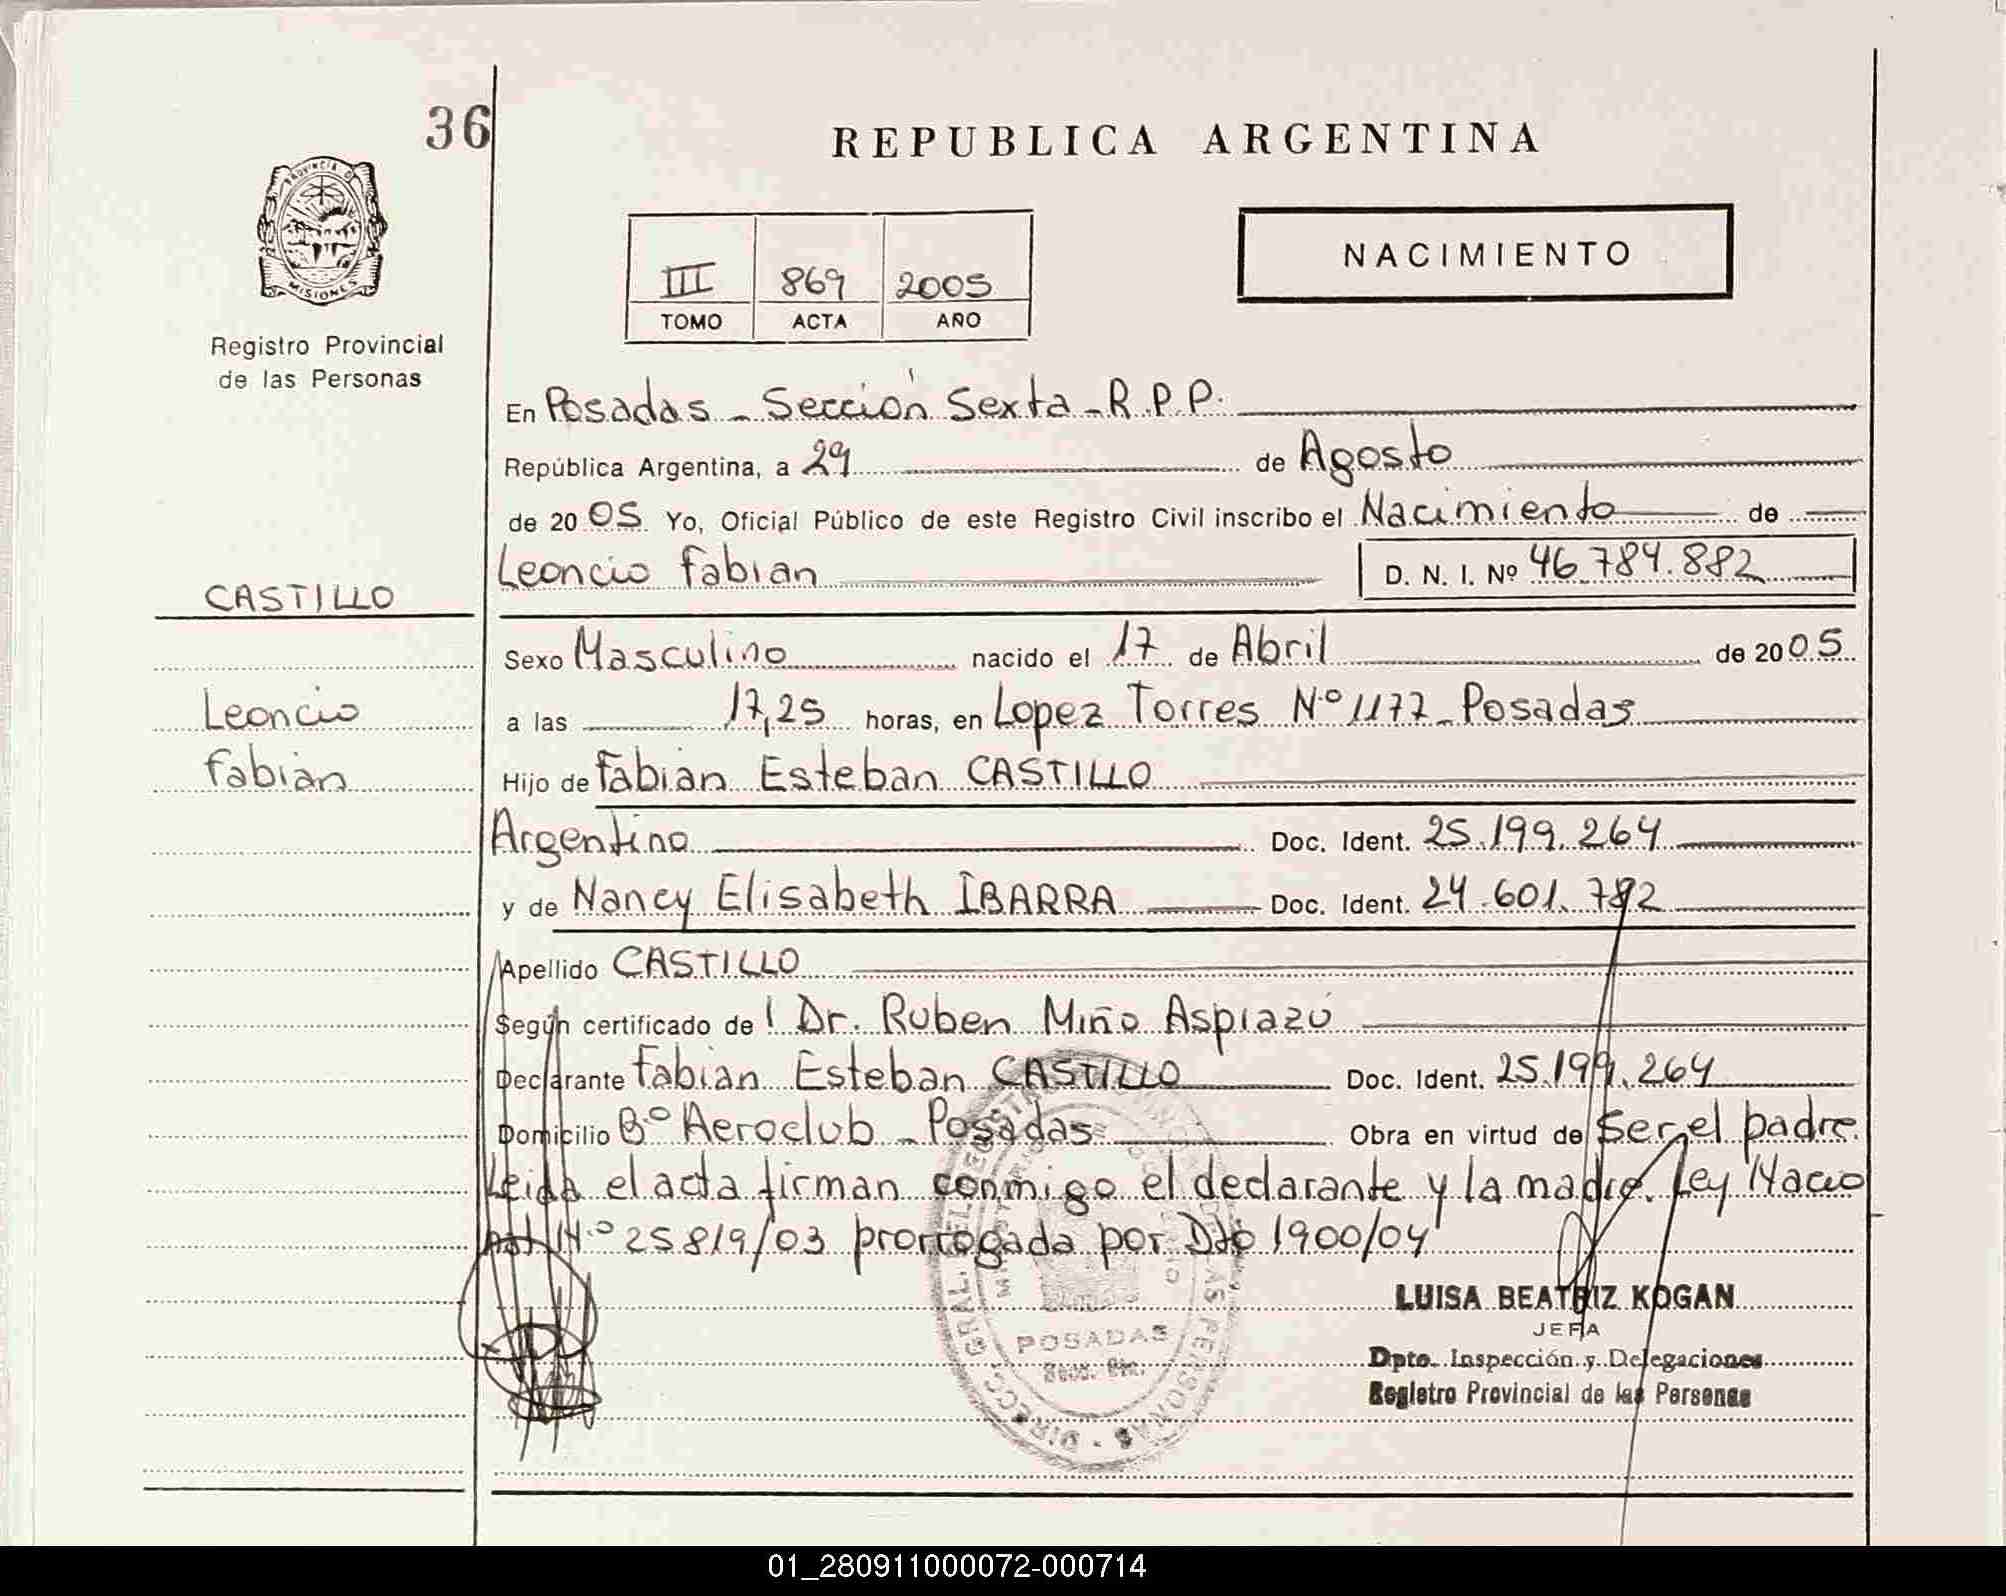 36
REPUBLICA ARGENTINA
PROVINCIA DE
MISIONES
Registro Provincial
de las Personas
III 869 2005
TOMO ACTA AÑO
NACIMIENTO
En Posadas - Sección Sexta - R.P.P.
República Argentina, a 29 de Agosto
de 2005 Yo, Oficial Público de este Registro Civil inscribo el Nacimiento de
Leoncio Fabian D. N. I. Nº 46.784.882
CASTILLO
Sexo Masculino nacido el 17 de Abril de 2005
Leoncio
a las 17,25 horas, en Lopez Torres Nº 1177 - Posadas
Fabian
Hijo de Fabian Esteban CASTILLO
Argentino Doc. Ident. 25.199.264
y de Nancy Elisabeth IBARRA Doc. Ident. 24.601.792
Apellido CASTILLO
Según certificado de l Dr. Ruben Miño Aspiazú
Declarante Fabian Esteban CASTILLO Doc. Ident. 25.199.264
Domicilio Bº Aeroclub - Posadas Obra en virtud de Ser el padre.
Leida el acta firman conmigo el declarante y la madre. Ley Nacio
nal Nº 25819/03 prorrogada por Dto 1900/04
LUISA BEATRIZ KOGAN
JEFA
Dpto. Inspección y Delegaciones
Registro Provincial de las Personas
POSADAS
01_280911000072-000714